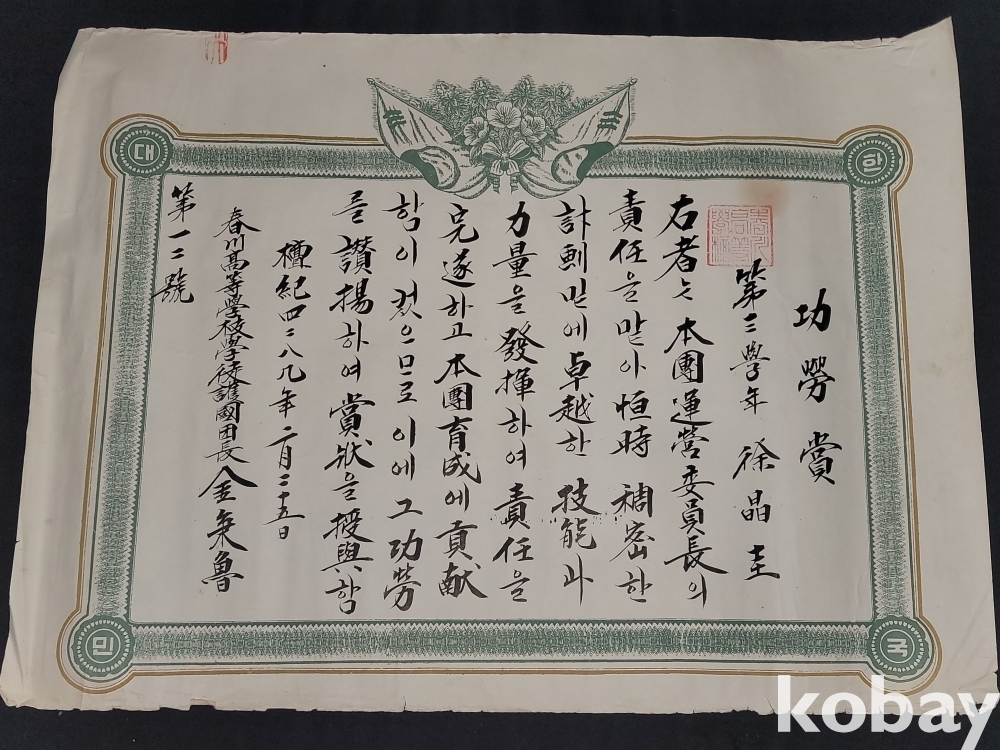 功勞賞
第三學年 徐晶圭
右者는 本團運營委員長의
責任을 맡아 恒時 稠密한
計劃 밑에 卓越한 技能과
力量을 發揮하여 責任을
完遂하고 本團育成에 貢献
함이 컸으므로 이에 그 功勞
를 讃揚하여 賞狀을 授與함
檀紀四二八九年 二月二十五日
春川高等學校學徒護國団長 金
第一二號
대
한
민
국
kobay